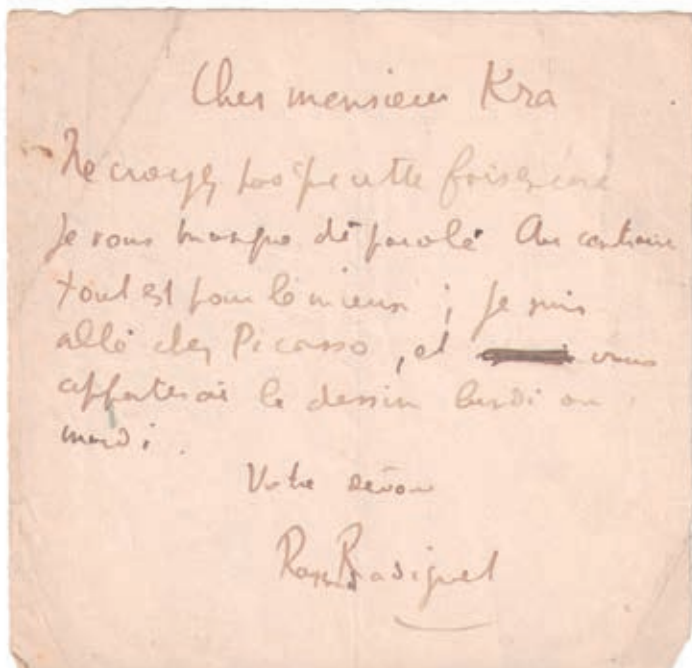 Cher monsieur Kra
Ne croyez pas que cette fois encore
je vous manque de parole. Au contraire
tout est pour le mieux ; je suis
allé chez Picasso, et vous
apporterai le dessin lundi ou
mardi.
Votre dévoué
Raym Radiguet